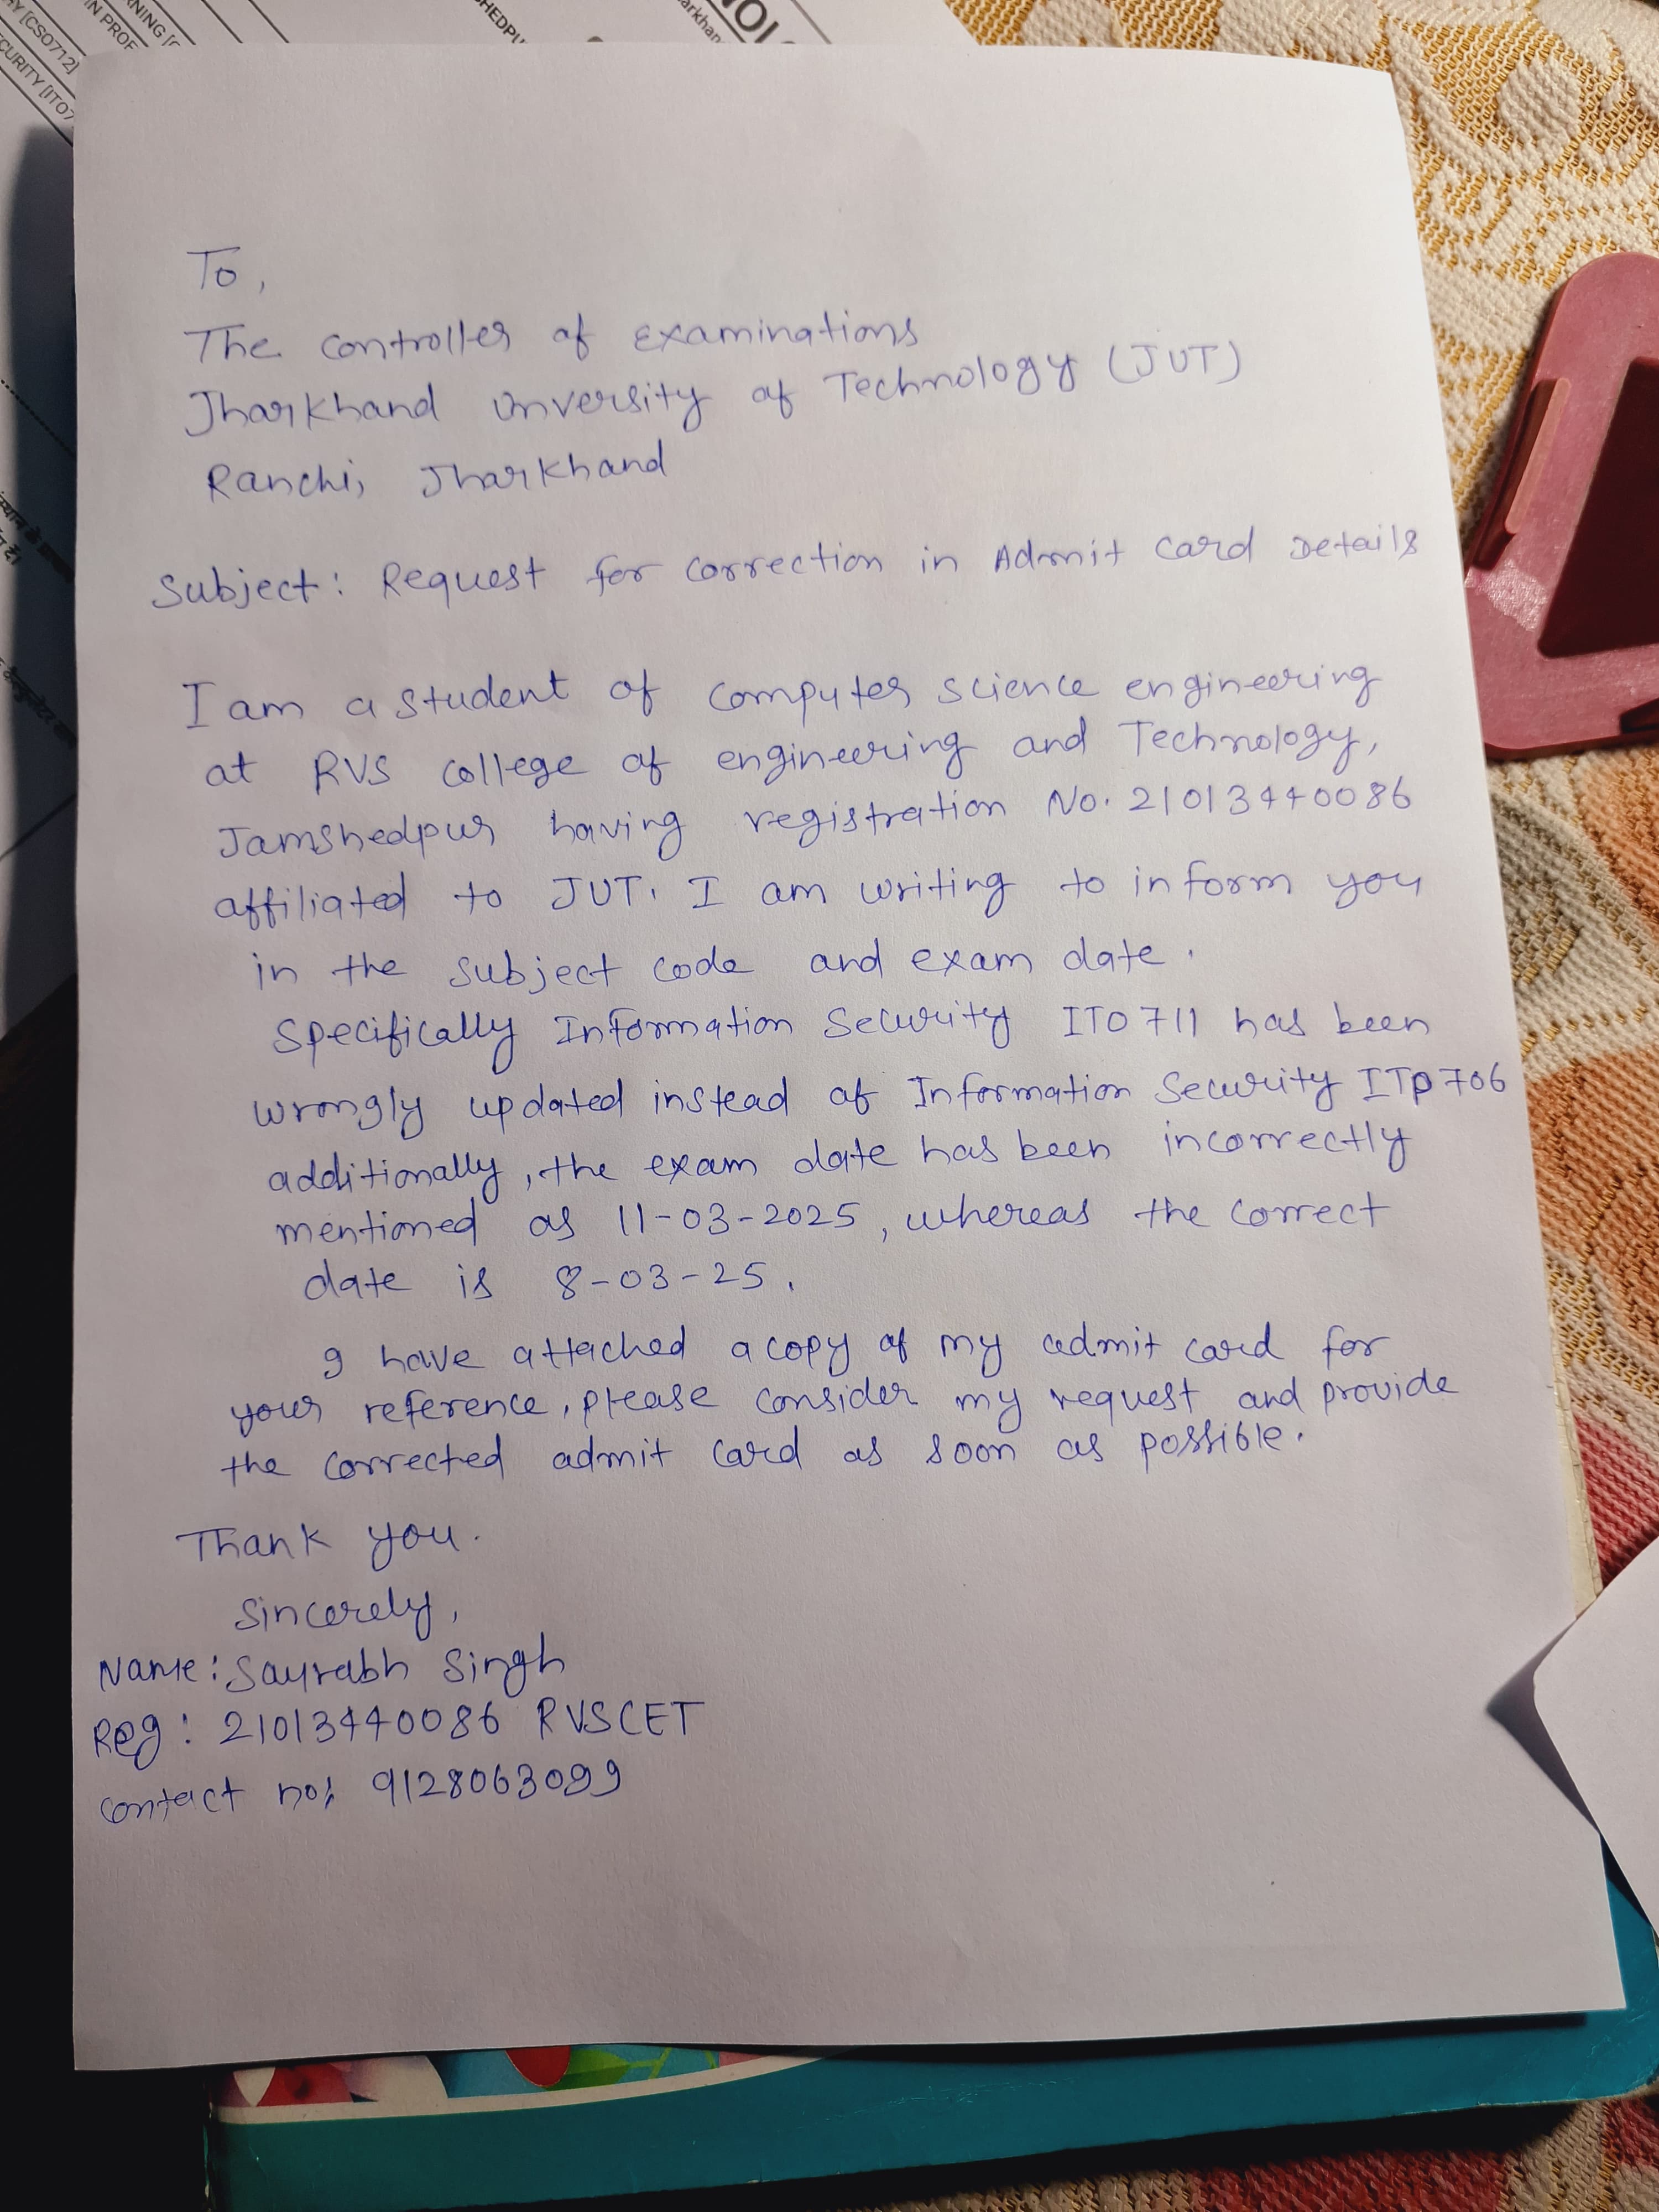 RY [CS0712]
CURITY [IT07
RNING [C
IN PROF
SHEDPU
arkhan
NOL
To,
The controller of examinations
Jharkhand Unversity of Technology (JUT)
Ranchi, Jharkhand
Subject: Request for correction in Admit Card Details
I am a student of computer science engineering
at RVS college of engineering and Technology,
Jamshedpur having registration No. 21013440086
affiliated to JUT. I am writing to inform you
in the subject code and exam date.
Specifically Information Security ITO711 has been
wrongly updated instead of Information Security ITP706
additionally, the exam date has been incorrectly
mentioned as 11-03-2025, whereas the correct
date is 8-03-25.
I have attached a copy of my admit card for
your reference, please consider my request and provide
the corrected admit card as soon as possible.
Thank you.
Sincerely,
Name: Saurabh Singh
Reg: 21013440086 RVSCET
contact no: 9128063099